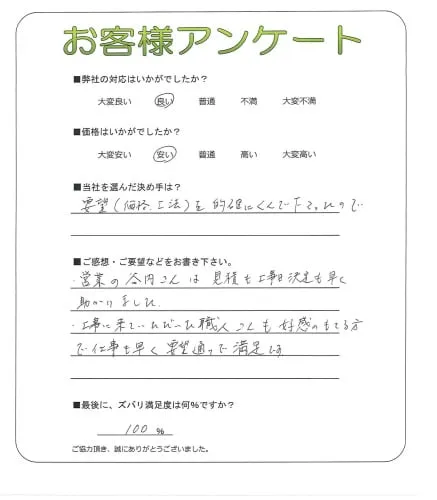 お客様アンケート
■弊社の対応はいかがでしたか？
大変良い 良い 普通 不満 大変不満
■価格はいかがでしたか？
大変安い 安い 普通 高い 大変高い
■当社を選んだ決め手は？
要望(価格、工法)を的確にくんで下さったので
■ご感想・ご要望などをお書き下さい。
・営業の谷内さんは見積も工事日決定も早く
助かりました
・工事に来ていただいた職人さんも好感のもてる方
で仕事も早く要望通りで満足です
■最後に、ズバリ満足度は何％ですか？
100 %
ご協力頂き、誠にありがとうございました。